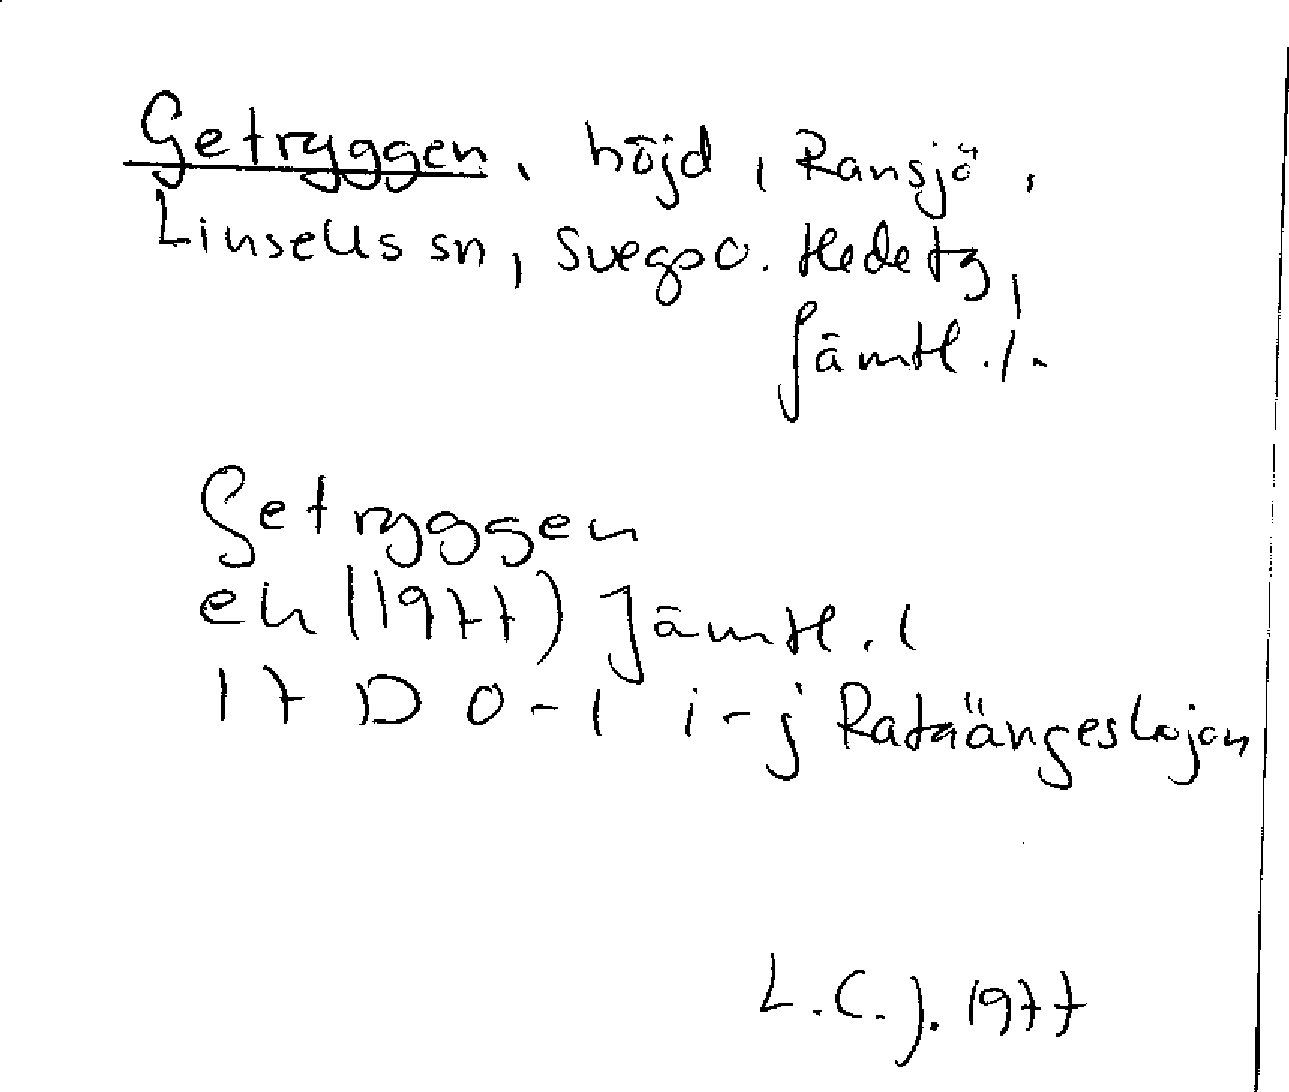 Getryggen, höjd, Ransjö,
Linsells sn, Svegs o. Hede tg,
Jämtl. l.
Getryggen
ek (1977) Jämtl. l
17 D 0-1 i-j
L.C.J. 1977